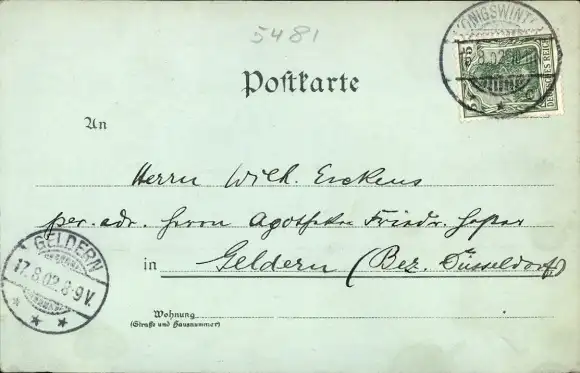 5481
KÖNIGSWINT
8.02
DEUTSCHES REICH
5
Postkarte
An
Herrn Wilh. Erckens
per. adr. Herrn Apotheker Friedr.
in Geldern (Bez. Düsseldorf)
GELDERN
17.8.02.8-9V.
Wohnung
(Straße und Hausnummer)